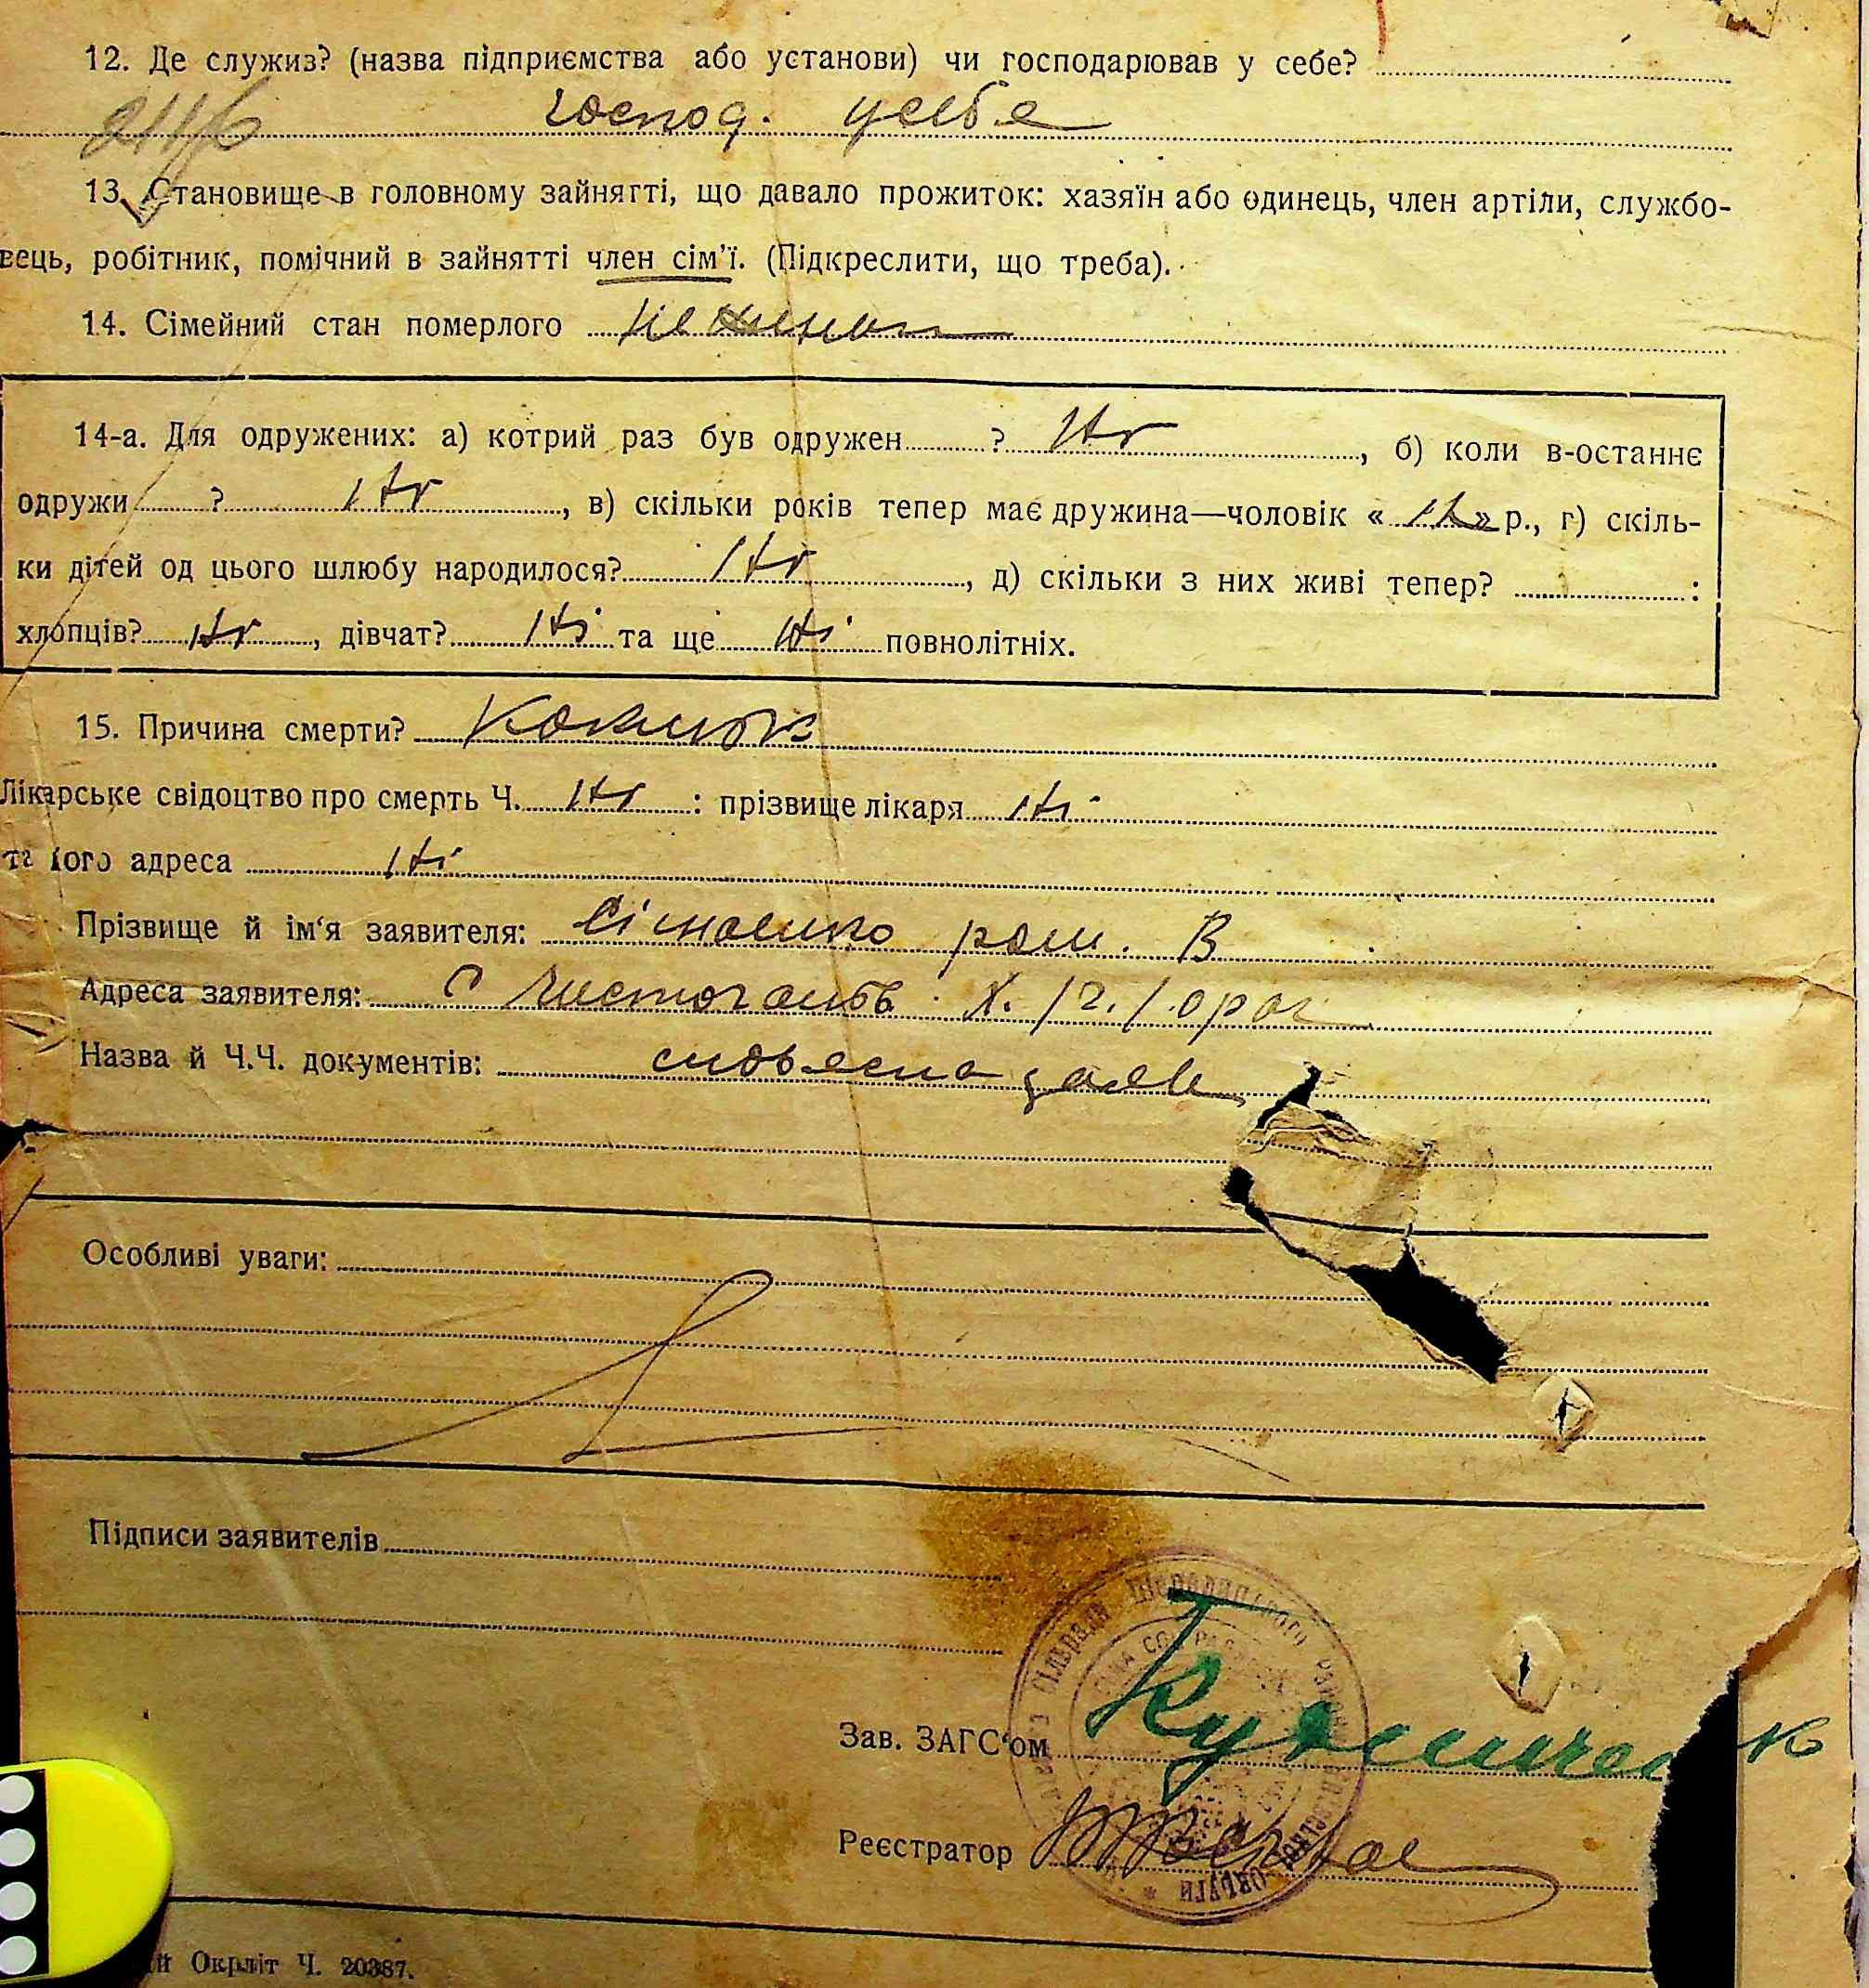 12. Де служиз? (назва підприємства або установи) чи господарював у себе?
господ. усебе
13. Становище в головному зайнятті, що давало прожиток: хазяїн або одинець, член артіли, службо-
вець, робітник, помічний в зайнятті член сім'ї. (Підкреслити, що треба).
14. Сімейний стан померлого
14-а. Для одружених: а) котрий раз був одружен ? , б) коли в-останнє
одружи ? , в) скільки років тепер має дружина—чоловік « » р., г) скіль-
ки дітей од цього шлюбу народилося? , д) скільки з них живі тепер? :
хлопців? , дівчат? та ще повнолітніх.
15. Причина смерти? Коклюш
Лікарське свідоцтво про смерть Ч. : прізвище лікаря
та його адреса
Прізвище й ім'я заявителя: В
Адреса заявителя: с
Назва й Ч.Ч. документів: словесна заяв
Особливі уваги:
Підписи заявителів
Зав. ЗАГС'ом
Реєстратор
й Окрліт Ч. 20387.